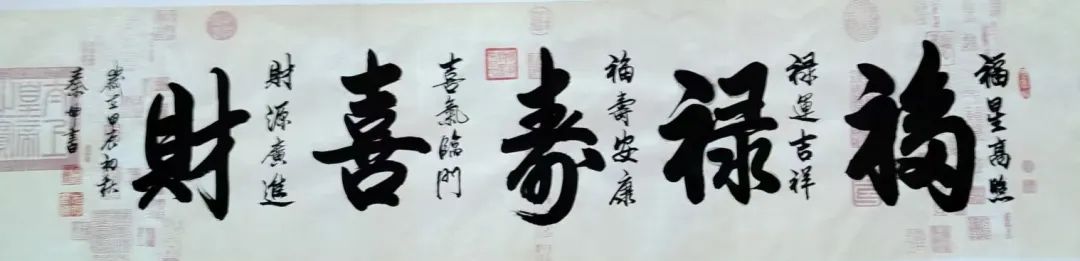 福星高照
福
禄運吉祥
禄
福壽安康
寿
喜氣臨門
喜
財源廣進
財
歲在甲辰初秋
泰山書